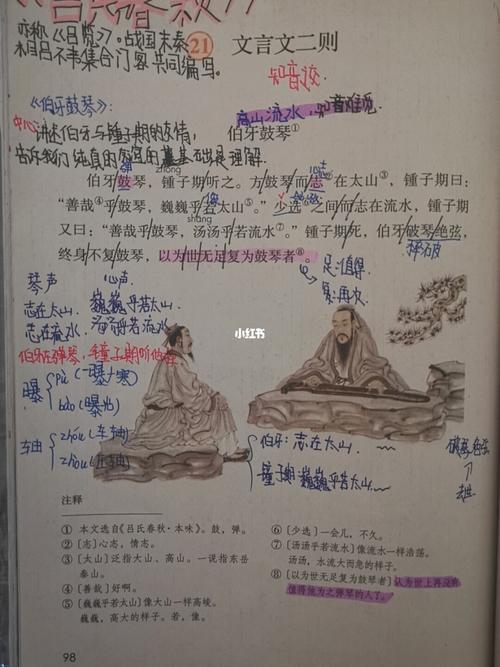 《吕氏春秋》
亦称《吕览》。战国末秦
相吕不韦集合门客共同编写。
21 文言文二则
知音说
高山流水 知音难觅
《伯牙鼓琴》:
中心:讲述伯牙与锺子期的友情,
告诉我们纯真的友谊的基础是理解.
伯牙鼓琴①
弹
zhōng
伯牙鼓琴,锺子期听之。方鼓琴而志②在太山③,锺子期曰:
“善哉④乎鼓琴,巍巍乎若太山⑤。”少选⑥之间而志在流水,锺子期
像
shāng
又曰:“善哉乎鼓琴,汤汤乎若流水⑦。”锺子期死,伯牙破琴绝弦,
摔破
终身不复鼓琴,以为世无足复为鼓琴者⑧。
足:值得
复:再次
琴声 心声
志在太山 巍巍乎若太山
志在流水 汤汤乎若流水
小红书
曝 pù(一曝十寒)
bào(曝光)
伯牙:志在太山
锺子期:巍巍乎若太山
注释
① 本文选自《吕氏春秋·本味》。鼓,弹。
② [志]心志,情志。
③ [太山]泛指大山、高山。一说指东岳
泰山。
④ [善哉]好啊。
⑤ [巍巍乎若太山]像大山一样高峻。
巍巍,高大的样子。若,像。
⑥ [少选]一会儿,不久。
⑦ [汤汤乎若流水]像流水一样浩荡。
汤汤,水流大而急的样子。
⑧ [以为世无足复为鼓琴者]认为世上再没有
值得他为之弹琴的人了。
98